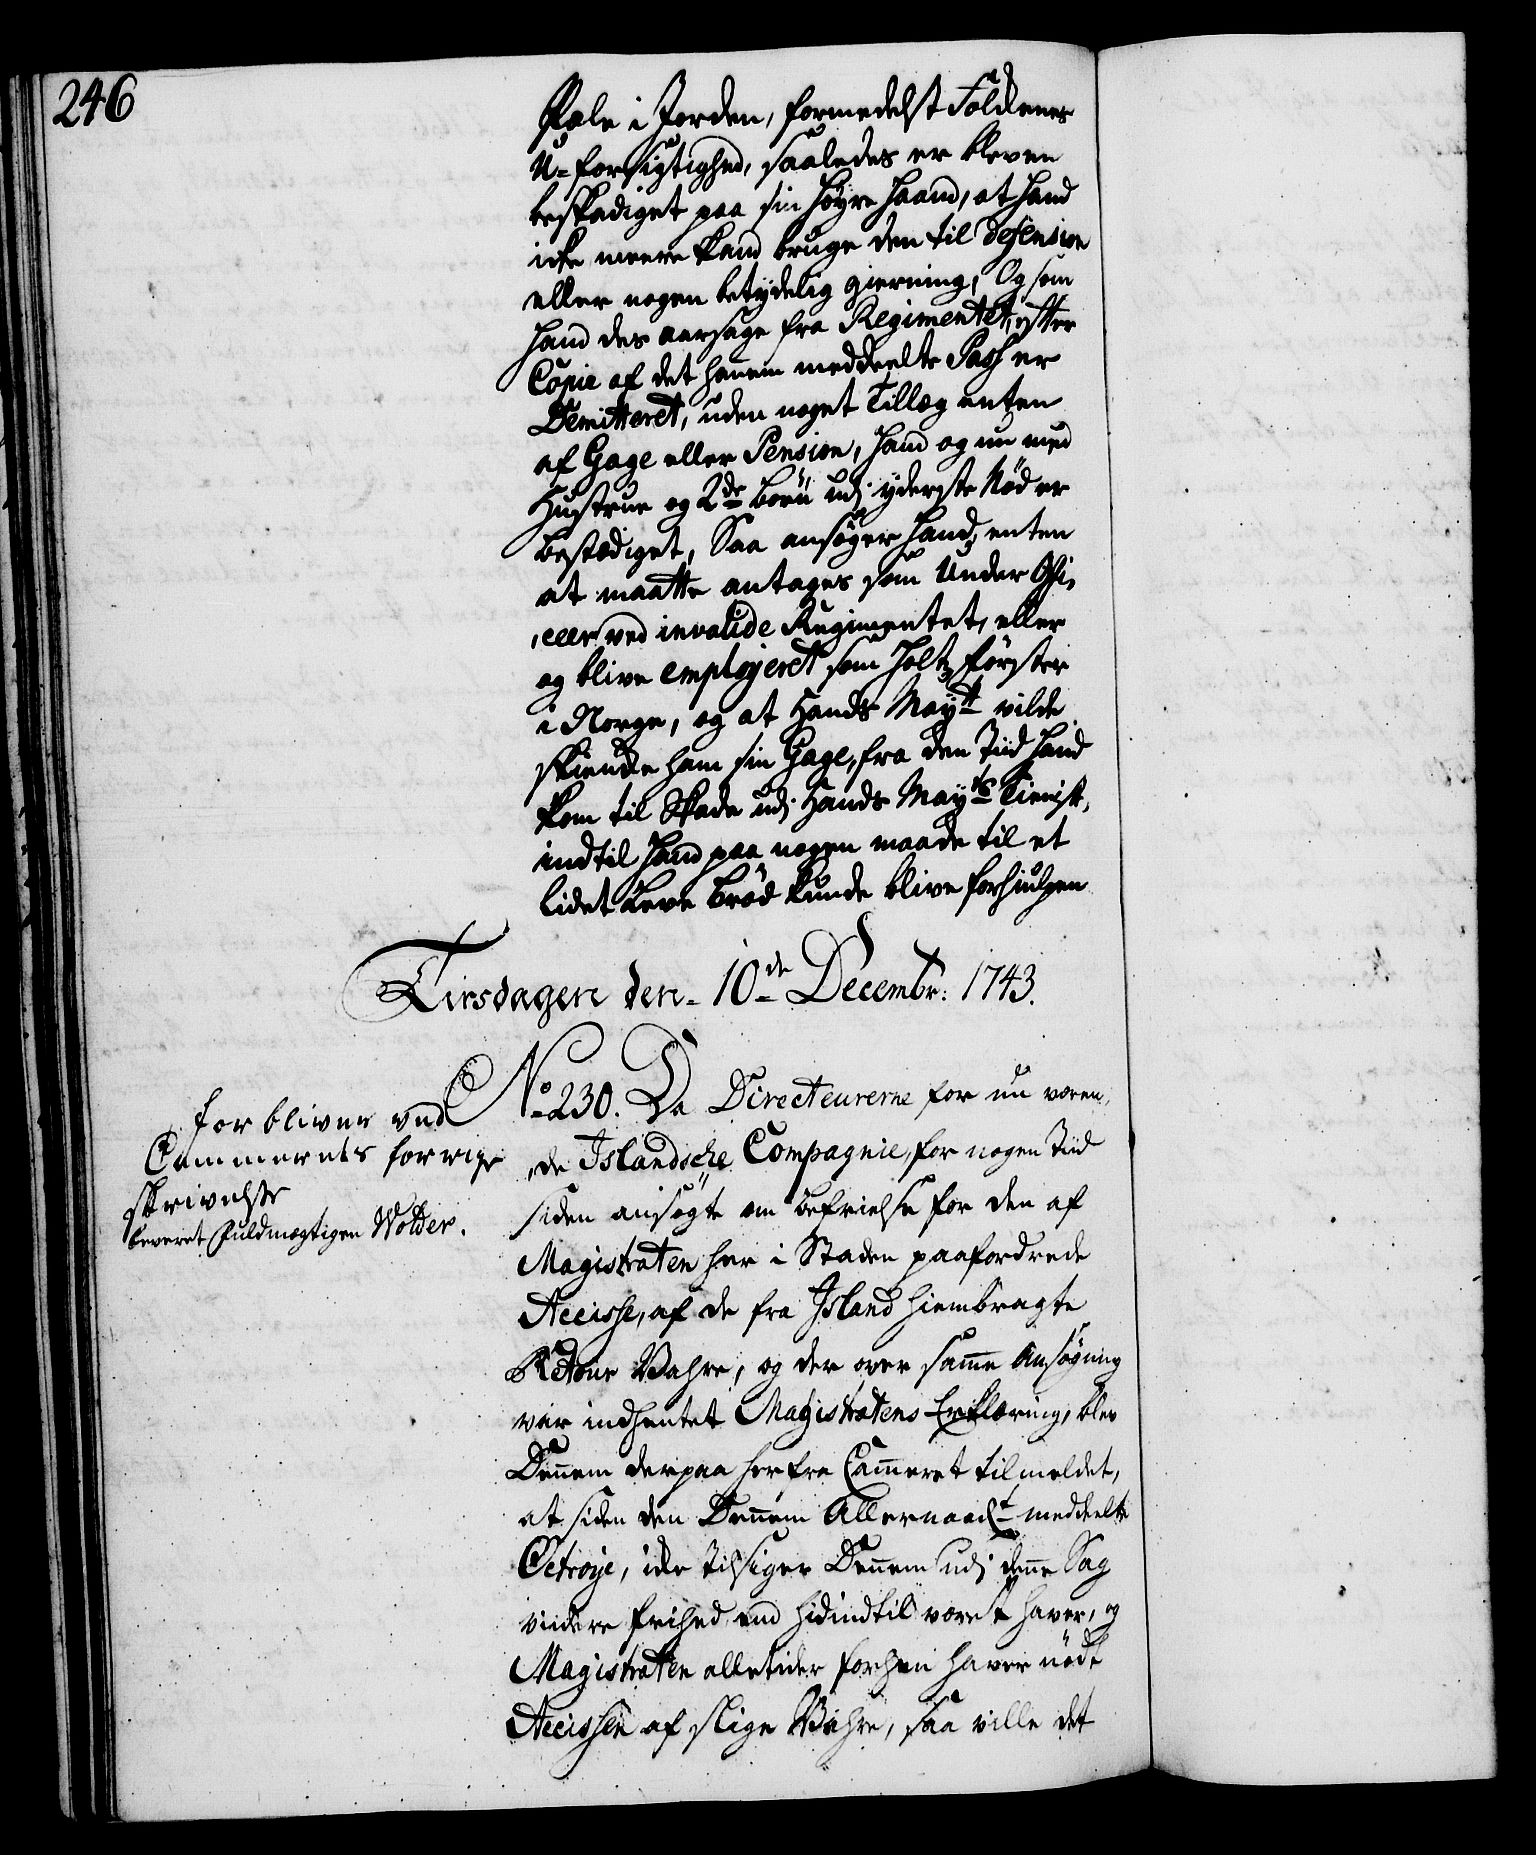 246
Pæle i Jorden, formedelst Folckenes
U-forsigtighed, saaledes er bleven
beskadiget paa sin høyre Haand, at hand
icke meere kand bruge den til defension
eller nogen betydelig gierning, Og som
hand des aarsage fra Regimentet, efter
Copie af det hannem meddeelte Pass er
Demitteret, uden noget Tillæg enten
af Gage eller Pension, hand og nu med
Hustrue og 2de børn udj yderste Nød er
bestædiget, Saa ansøger hand, enten
at maatte antages som Under Offi,
,ceer ved invalide Regimentet, eller
og blive employeret som Holtz førster
i Norge, og at Hands Maytt vilde
skiencke ham sin Gage, fra den Tiid hand
kom til Skade udj Hands Mayts Tieniste,
indtil hand paa nogen maade til et
lidet Leve brød kunde blive forhiulpen
Tirsdagen den 10de Decembr: 1743.
No 230. Da Directeurerne for nu væren,
,de Islandsche Compagnie, for nogen Tiid
siden ansøgte om befrielse for den af
Magistraten her i Staden paafordrede
Accisse, af de fra Island hiembragte
Retour Wahre, og der over samme Ansøgning
var indhentet Magistratens Erklæring, blev
Dennem derpaa her fra Cammeret tilmeldet,
at siden den Dennem Allernaadt meddeelte
Octroye, icke tilsiger Dennem udj denne Sag
videre frihed end hidindtil været haver, og
Magistraten alletider forhen haver nødt
Accissen af slige Wahre, saa ville det
forbliver ved
Cammerets forrige
skrivelse
leveret Fuldmægtigen Wolder.